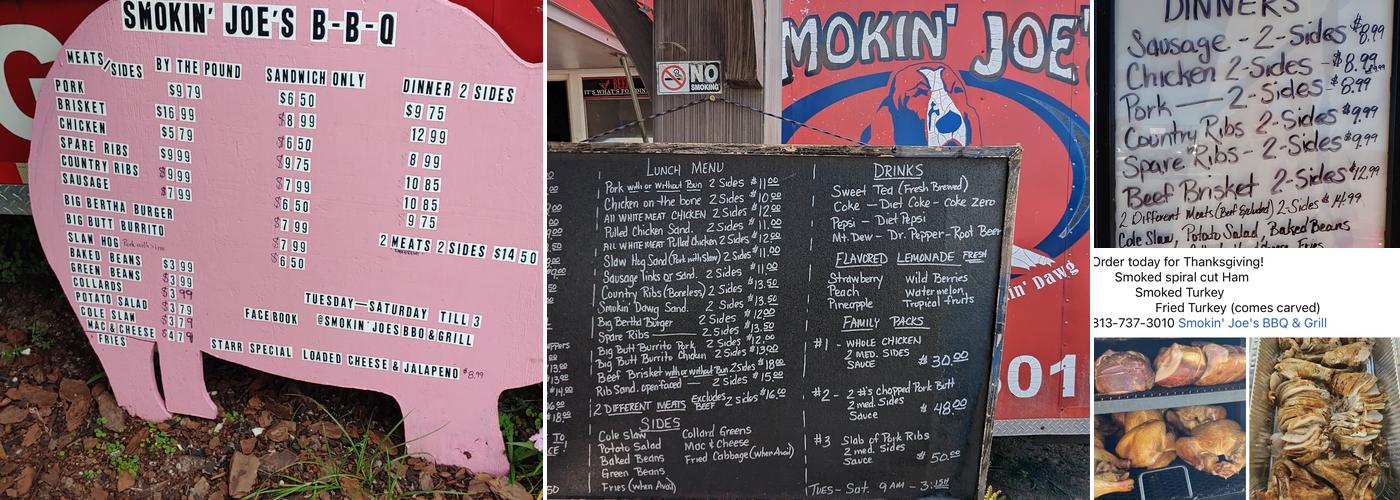 SMOKIN' JOE'S B-B-Q
MEATS/SIDES BY THE POUND SANDWICH ONLY DINNER 2 SIDES
PORK $9 79 $6 50 $9 75
BRISKET $16 99 $8 99 12 99
CHICKEN $5 79 $6 50 8 99
SPARE RIBS $9 99 $9 75 10 85
COUNTRY RIBS $9 99 $7 99 10 85
SAUSAGE $7 99 $6 50 9 75
BIG BERTHA BURGER $7 99
BIG BUTT BURRITO $7 99 2 MEATS 2 SIDES $14 50
SLAW HOG Pork with slaw $6 50
BAKED BEANS $3 99
GREEN BEANS $3 79
COLLARDS $3 99
POTATO SALAD $3 79
COLE SLAW $3 79
MAC & CHEESE $4 79
FRIES
TUESDAY—SATURDAY TILL 3
FACEBOOK @SMOKIN'JOESBBQ&GRILL
STARR SPECIAL LOADED CHEESE & JALAPENO $8.99
NO SMOKING
MOKIN' JOE'
LUNCH MENU
Pork with or without Bun 2 Sides $11.00
Chicken on the bone 2 Sides $10.50
All WHITE MEAT CHICKEN 2 Sides $12.00
Pulled Chicken Sand. 2 Sides $11.00
ALL WHITE MEAT Pulled Chicken 2 Sides $12.00
Slaw Hog Sand (Pork with Slaw) 2 Sides $11.00
Sausage links or Sand. 2 Sides $11.00
Country Ribs (Boneless) 2 Sides $13.50
Smokin Dawg Sand. 2 Sides $13.50
Big Bertha Burger 2 Sides $12.00
Spare Ribs 2 Sides $13.50
Big Butt Burrito Pork 2 Sides $12.00
Big Butt Burrito Chicken 2 Sides $13.00
Beef Brisket with or without Bun 2 Sides $18.00
Rib Sand. open faced — 2 Sides $15.00
2 DIFFERENT MEATS Excludes BEEF 2 Sides $16.00
SIDES
Cole Slaw Collard Greens
Potato Salad Mac & Cheese
Baked Beans Fried Cabbage (When Avail)
Green Beans
Fries (when Avail)
DRINKS
Sweet Tea (Fresh Brewed)
Coke — Diet Coke - coke Zero
Pepsi - Diet Pepsi
Mt. Dew - Dr. Pepper - Root Beer
FLAVORED LEMONADE FRESH
Strawberry Wild Berries
Peach Watermelon
Pineapple Tropical fruits
FAMILY PACKS
#1 - WHOLE CHICKEN
2 MED. SIDES
SAUCE $30.00
#2 - 2 #'s chopped Pork Butt
2 med. Sides
Sauce $48.00
#3 Slab of Pork Ribs
2 med. Sides
Sauce $50.00
TUES - Sat. 9 AM - 3:
in' Dawg
01
DINNERS
Sausage - 2-Sides $8.99
Chicken 2-Sides - $8.99
Pork — 2-Sides $8.99
Country Ribs 2-Sides $9.99
Spare Ribs - 2-Sides $9.99
Beef Brisket 2-Sides $12.99
2 Different Meats (Beef Excluded) 2-Sides $14.99
Cole Slaw, Potato Salad, Baked Beans
Order today for Thanksgiving!
Smoked spiral cut Ham
Smoked Turkey
Fried Turkey (comes carved)
813-737-3010 Smokin' Joe's BBQ & Grill